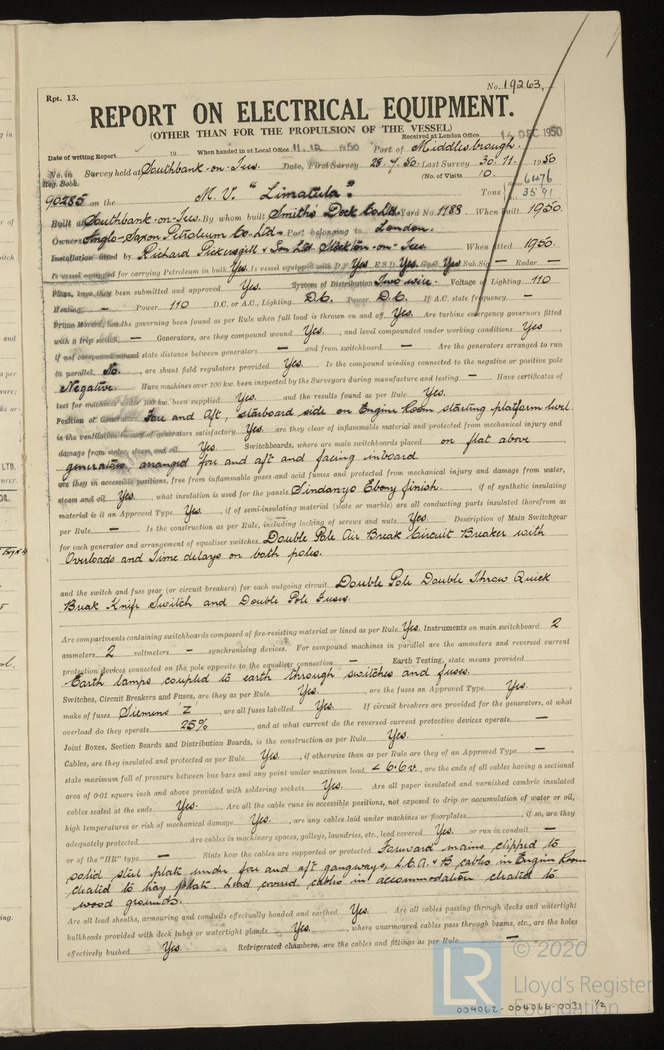 Rpt. 13.
No. 19263.
REPORT ON ELECTRICAL EQUIPMENT.
(OTHER THAN FOR THE PROPULSION OF THE VESSEL)
Received at London Office 14 DEC 1950
Date of writing Report 19 When handed in at Local Office 11.12. 1950 Port of Middlesbrough.
No. in Survey held at Southbank-on-Tees. Date, First Survey 28.7.50. Last Survey 30.11. 1950
Reg. Book. (No. of Visits 10.
90285 on the M.V. "Limatula" Tons 6476
3591
Built at Southbank-on-Tees. By whom built Smith's Dock Co Ltd. Yard No. 1188. When built 1950.
Owners Anglo-Saxon Petroleum Co Ltd. Port belonging to London.
Installation fitted by Richard Pickersgill & Son Ltd Stockton-on-Tees. When fitted 1950.
Is vessel equipped for carrying Petroleum in bulk Yes. Is vessel equipped with D.F. Yes. E.S.D. Yes. Yes Sub.Sig. — Radar —
Plans, have they been submitted and approved Yes. System of Distribution Two wire. Voltage of Lighting 110
Heating — Power 110 D.C. or A.C., Lighting D.C. Power D.C. If A.C. state frequency —
Prime Movers, has the governing been found as per Rule when full load is thrown on and off Yes. Are turbine emergency governors fitted
with a trip switch — Generators, are they compound wound Yes. , and level compounded under working conditions Yes ,
if not compound wound state distance between generators — and from switchboard — Are the generators arranged to run
in parallel No. , are shunt field regulators provided Yes. Is the compound winding connected to the negative or positive pole
Negative. Have machines over 100 kw. been inspected by the Surveyors during manufacture and testing — Have certificates of
test for machines under 100 kw. been supplied Yes. and the results found as per Rule Yes.
Position of Generators Fore and aft, starboard side on Engine Room starting platform level.
is the ventilation in way of generators satisfactory Yes. are they clear of inflammable material and protected from mechanical injury and
damage from water, steam, and oil Yes. Switchboards, where are main switchboards placed on flat above
generators arranged fore and aft and facing inboard
are they in accessible positions, free from inflammable gases and acid fumes and protected from mechanical injury and damage from water,
steam and oil Yes. , what insulation is used for the panels Sindanyo Ebony finish. , if of synthetic insulating
material is it an Approved Type Yes. , if of semi-insulating material (slate or marble) are all conducting parts insulated therefrom as
per Rule — Is the construction as per Rule, including locking of screws and nuts Yes. Description of Main Switchgear
for each generator and arrangement of equaliser switches Double Pole Air Break Circuit Breaker with
Overloads and Time delays on both poles.
and the switch and fuse gear (or circuit breakers) for each outgoing circuit Double Pole Double Throw Quick
Break Knife Switch and Double Pole Fuses.
Are compartments containing switchboards composed of fire-resisting material or lined as per Rule Yes. Instruments on main switchboard 2
ammeters 2 voltmeters — synchronising devices. For compound machines in parallel are the ammeters and reversed current
protection devices connected on the pole opposite to the equaliser connection — Earth Testing, state means provided
Earth lamps coupled to earth through switches and fuses.
Switches, Circuit Breakers and Fuses, are they as per Rule Yes. , are the fuses an Approved Type Yes. ,
make of fuses Siemens 'Z' , are all fuses labelled Yes. If circuit breakers are provided for the generators, at what
overload do they operate 25% , and at what current do the reversed current protective devices operate —
Joint Boxes, Section Boards and Distribution Boards, is the construction as per Rule Yes.
Cables, are they insulated and protected as per Rule Yes , if otherwise than as per Rule are they of an Approved Type — ,
state maximum fall of pressure between bus bars and any point under maximum load < 6.6v. , are the ends of all cables having a sectional
area of 0·01 square inch and above provided with soldering sockets Yes. Are all paper insulated and varnished cambric insulated
cables sealed at the ends Yes. Are all the cable runs in accessible positions, not exposed to drip or accumulation of water or oil,
high temperatures or risk of mechanical damage Yes. , are any cables laid under machines or floorplates , if so, are they
adequately protected Are cables in machinery spaces, galleys, laundries, etc., lead covered Yes. or run in conduit —
or of the "HR" type — State how the cables are supported or protected Forward mains clipped to
solid steel plate under fore and aft gangways, L.C.A. & B cables in Engine Room
cleated to tray plate. Lead covered cables in accommodation cleated to
wood grounds.
Are all lead sheaths, armouring and conduits effectually bonded and earthed Yes. Are all cables passing through decks and watertight
bulkheads provided with deck tubes or watertight glands Yes. , where unarmoured cables pass through beams, etc., are the holes
effectively bushed Yes. Refrigerated chambers, are the cables and fittings as per Rule —
© 2020
LR Lloyd's Register
Foundation
004062-004066-0031 1/2